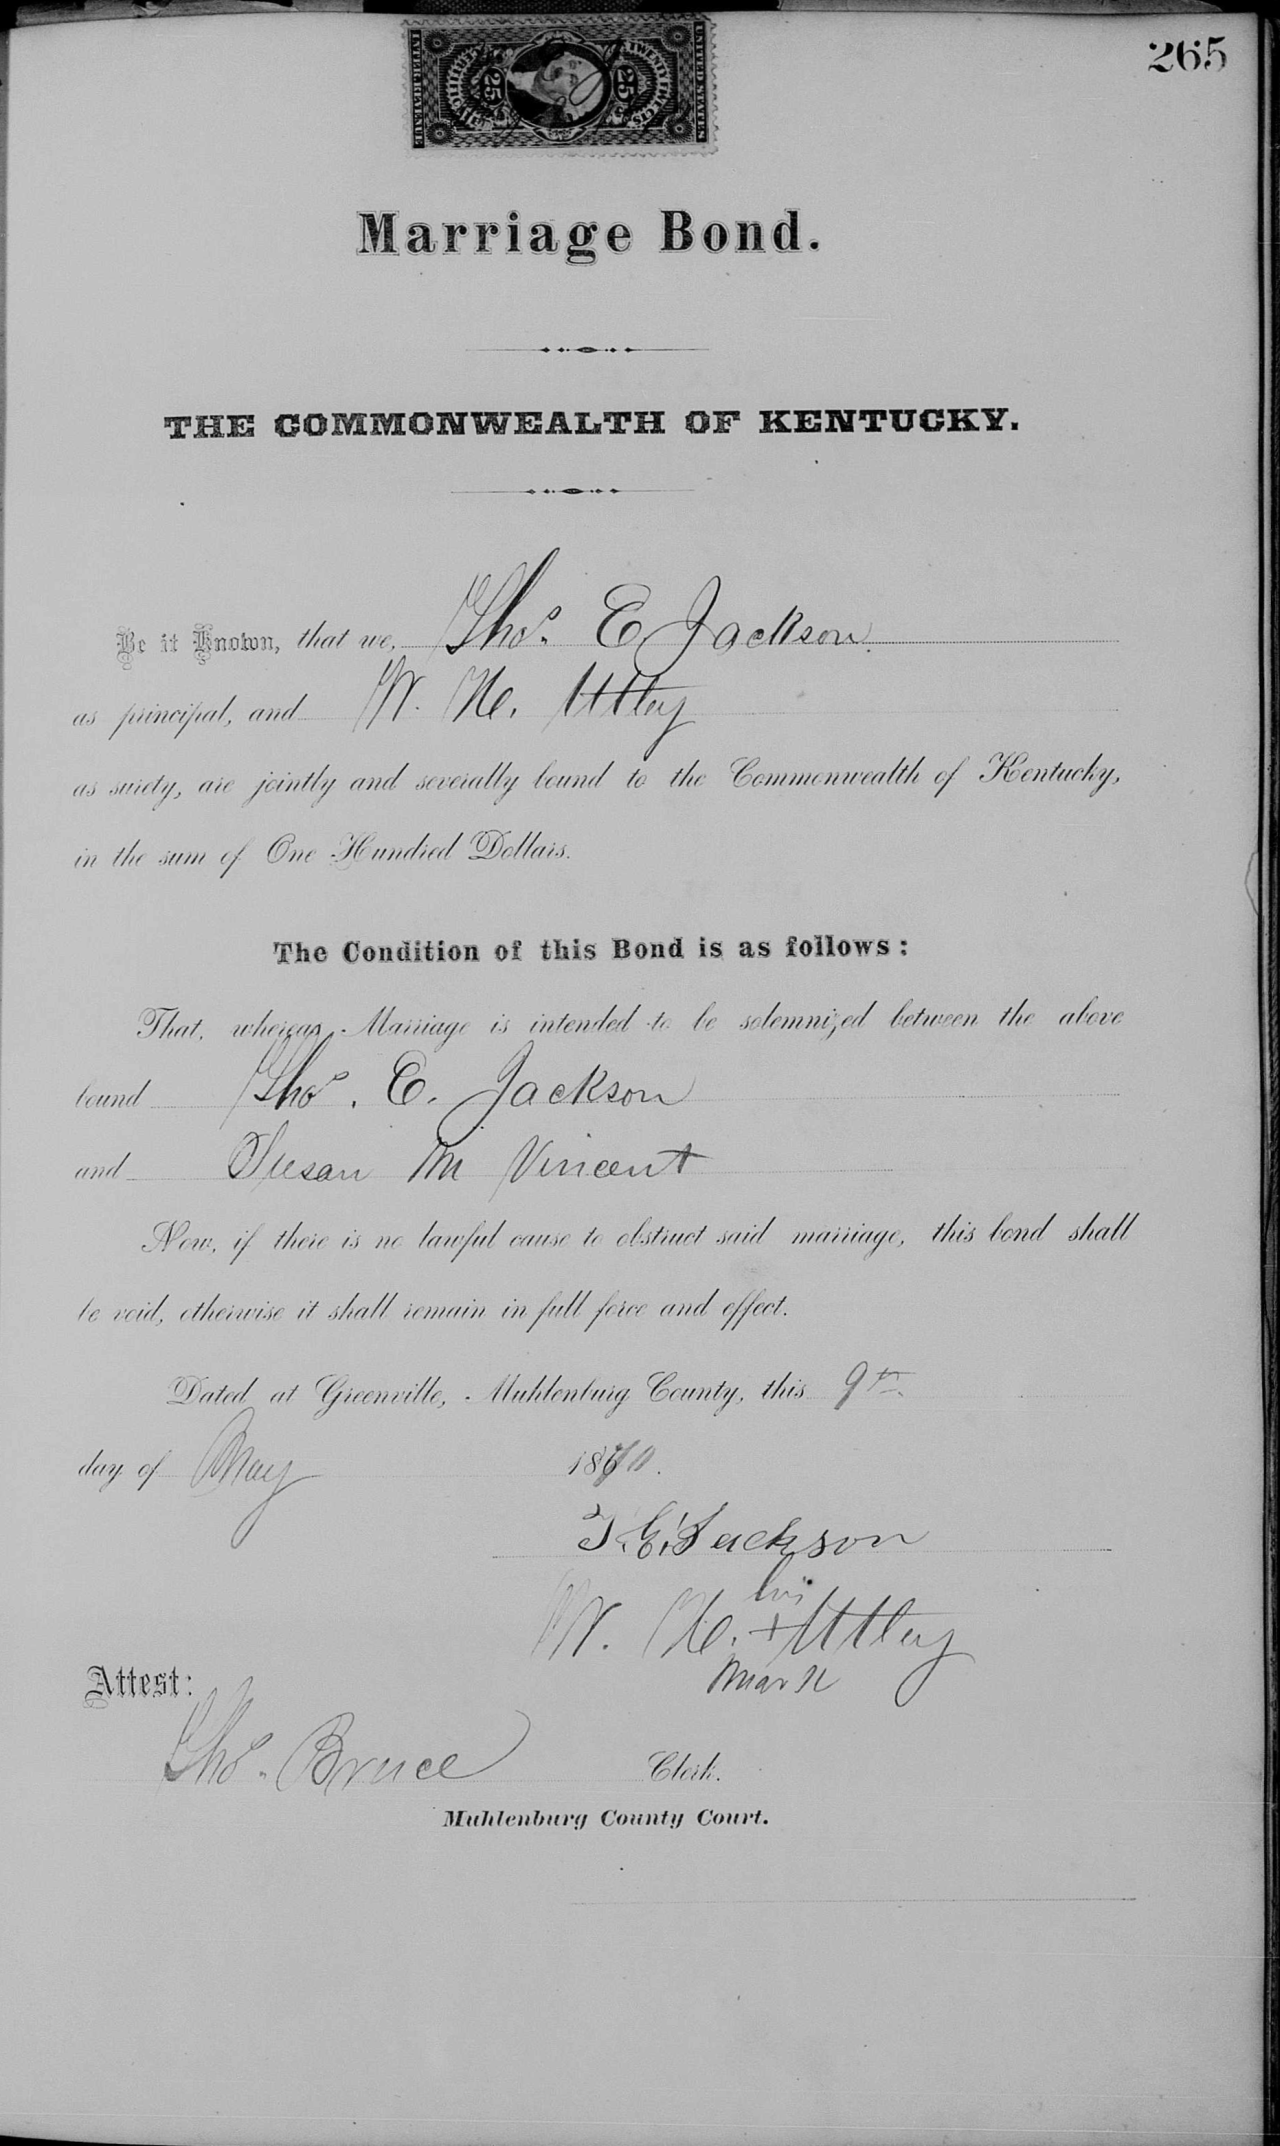 265
UNITED STATES
TWENTY FIVE CTS.
25 25
INTER. REVENUE
Marriage Bond.
THE COMMONWEALTH OF KENTUCKY.
Be it Known, that we, Thos. E Jackson
as principal, and W. H. Uttley
as surety, are jointly and severally bound to the Commonwealth of Kentucky,
in the sum of One Hundred Dollars.
The Condition of this Bond is as follows:
That, whereas, Marriage is intended to be solemnized between the above
bound Thos. E. Jackson
and Susan M Vincent
Now, if there is no lawful cause to obstruct said marriage, this bond shall
be void, otherwise it shall remain in full force and effect.
Dated at Greenville, Muhlenburg County, this 9th.
day of May 1870.
T. E. Jackson
his
W. H. + Uttley
mark
Attest:
Thos. Bruce Clerk.
Muhlenburg County Court.